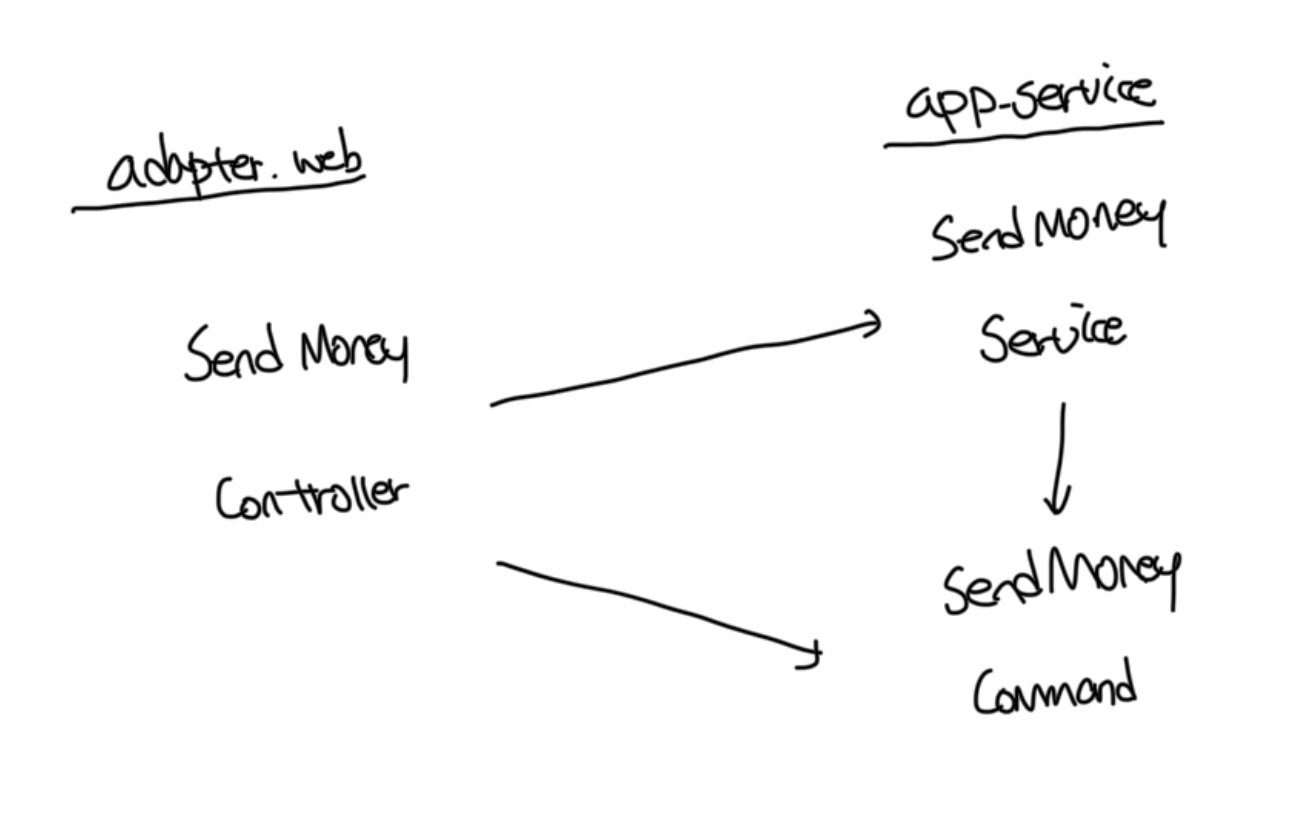 adapter.web
Send Money
Controller
app-service
SendMoney
Service
SendMoney
Command